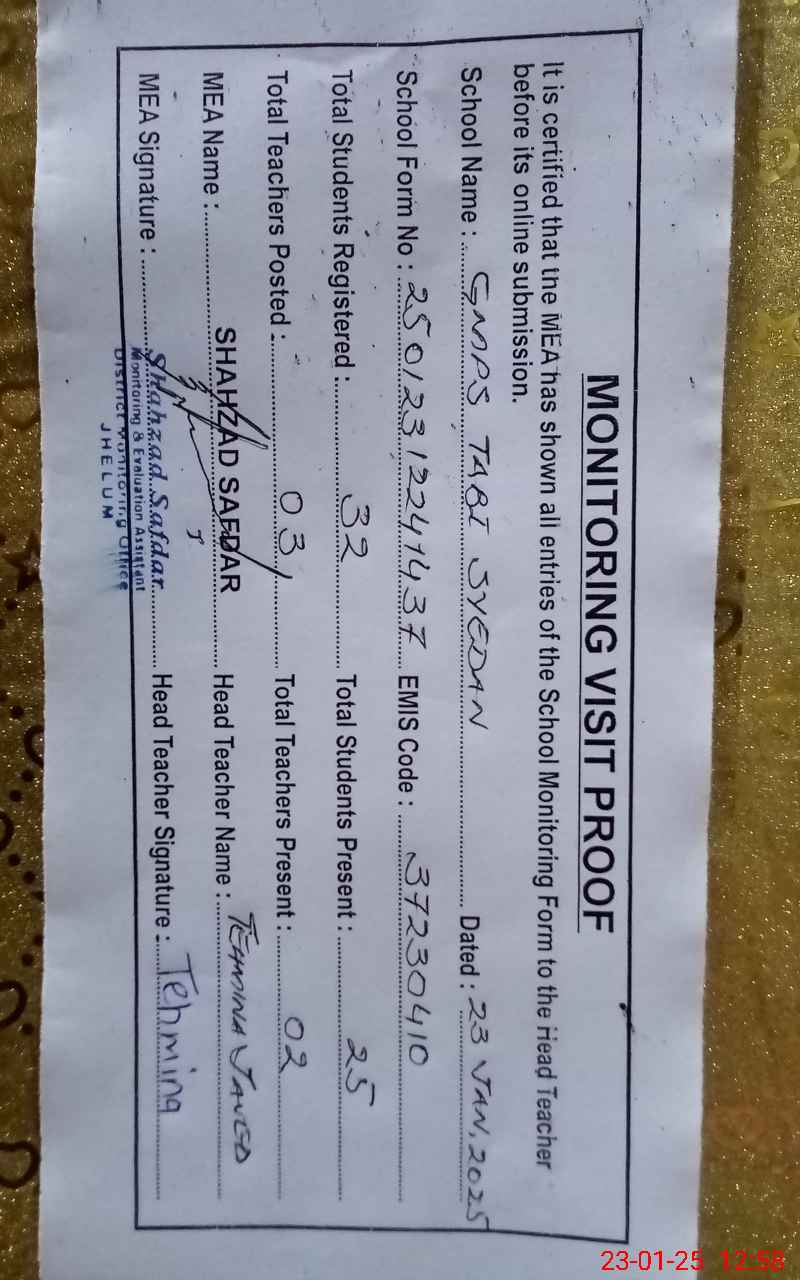 MONITORING VISIT PROOF
It is certified that the MEA has shown all entries of the School Monitoring Form to the Head Teacher
before its online submission.
School Name : GMPS TABI SYEDAN Dated : 23 JAN, 2025
School Form No : 250123122414 37 EMIS Code : 37230410
Total Students Registered : 32 Total Students Present : 25
Total Teachers Posted : 03 Total Teachers Present : 02
MEA Name : SHAHZAD SAFDAR Head Teacher Name : TEHMINA JAVED
MEA Signature : Shahzad Safdar Head Teacher Signature : Tehmina
Monitoring & Evaluation Assistant
District Monitoring Office
JHELUM
23-01-25 12:58